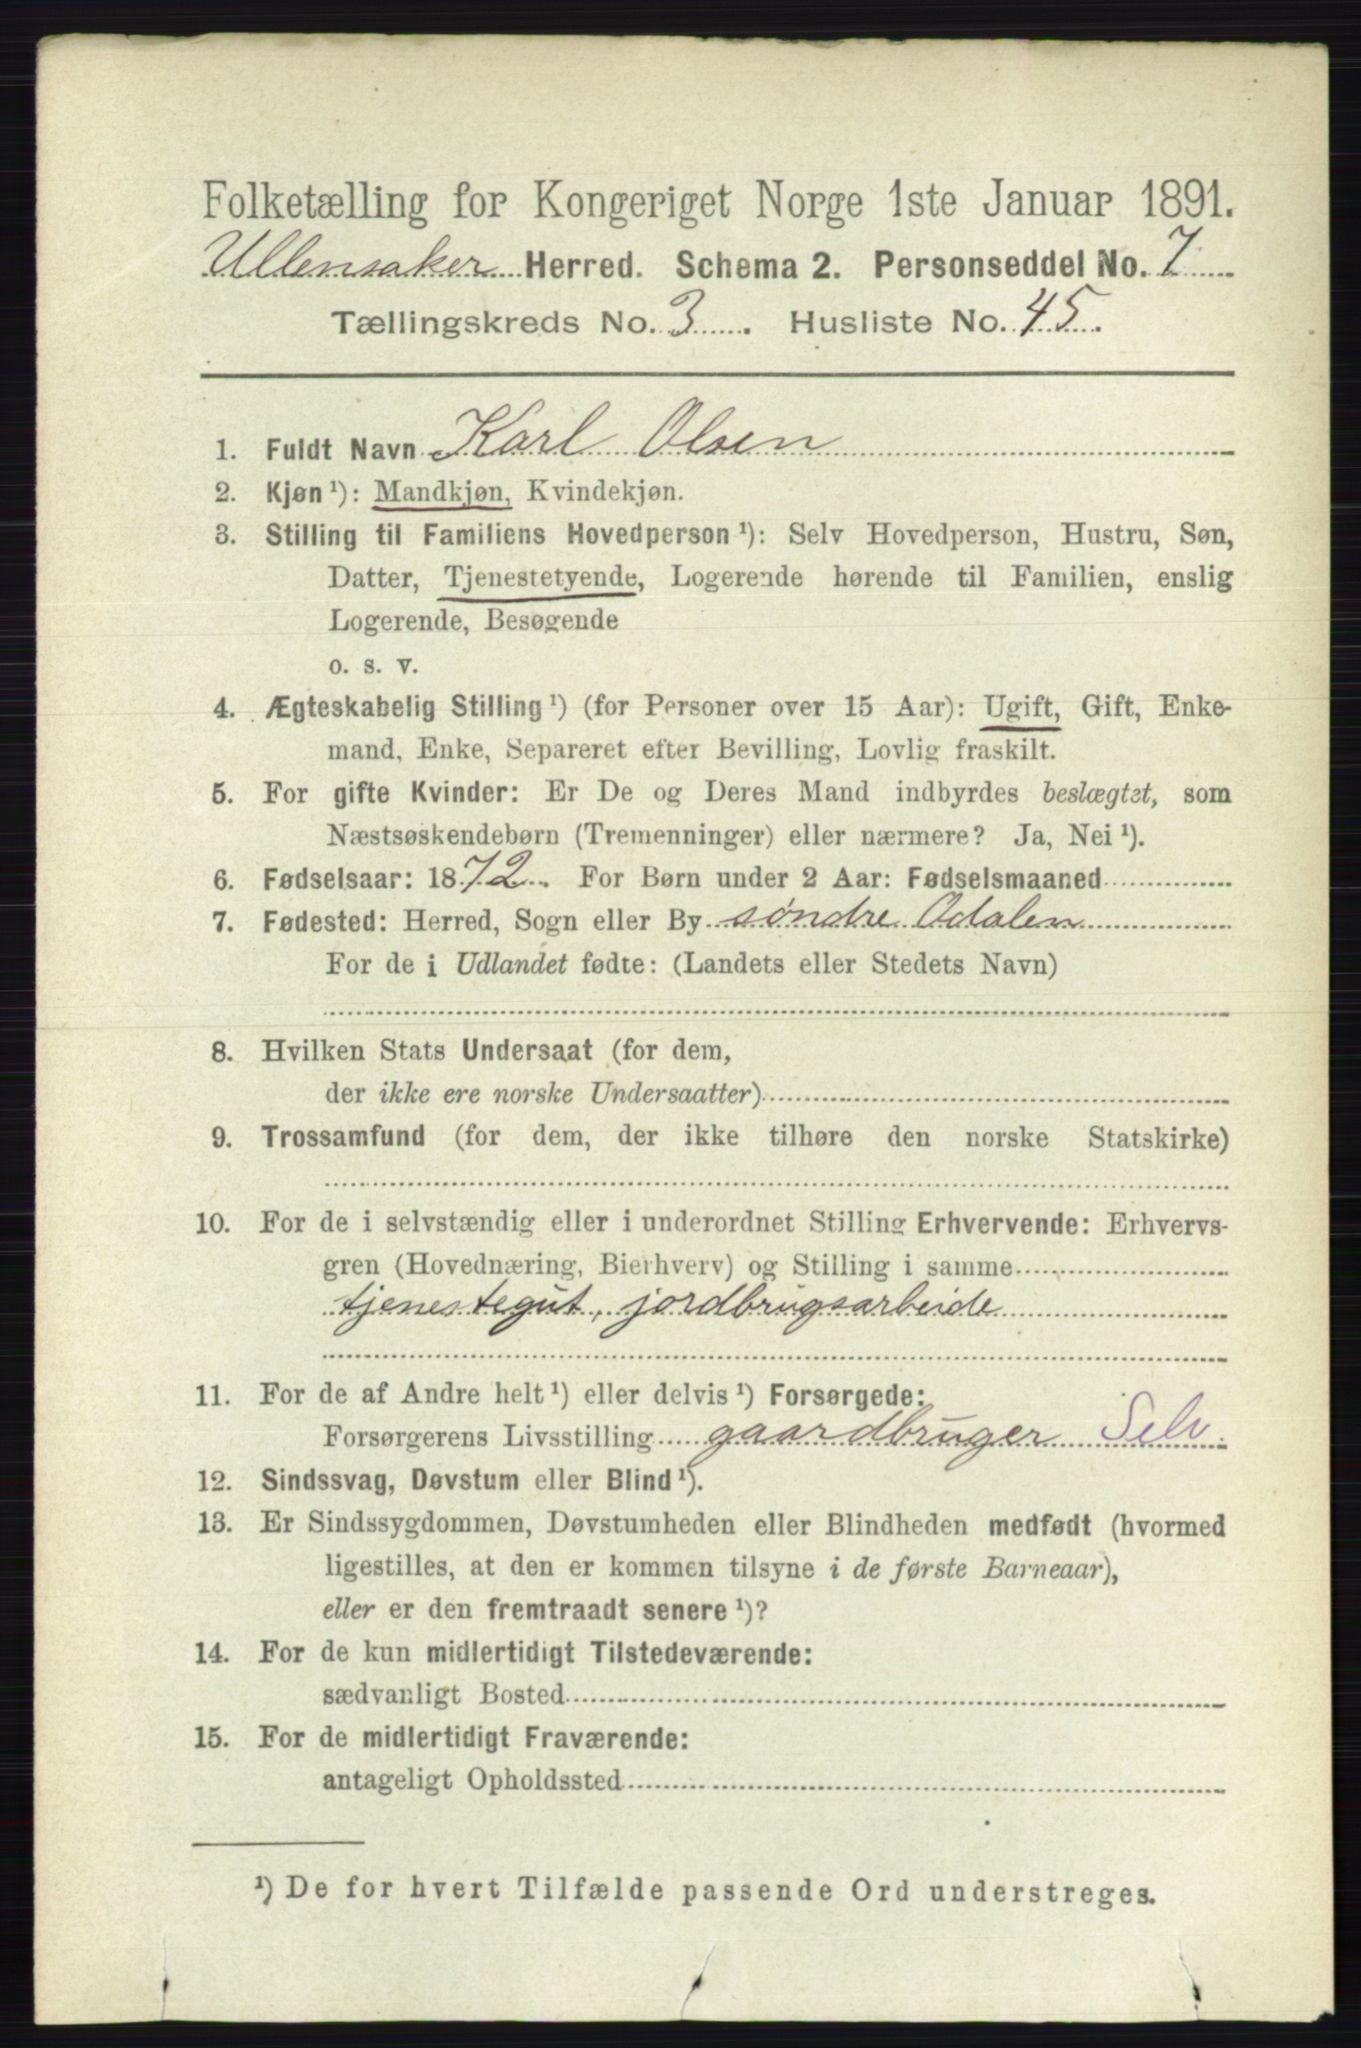 Folketælling for Kongeriget Norge 1ste Januar 1891.
Ullensaker Herred. Schema 2. Personseddel No. 7
Tællingskreds No. 3. Husliste No. 45.
1. Fuldt Navn Karl Olsen
2. Kjøn ¹): Mandkjøn, Kvindekjøn.
3. Stilling til Familiens Hovedperson ¹): Selv Hovedperson, Hustru, Søn,
Datter, Tjenestetyende, Logerende hørende til Familien, enslig
Logerende, Besøgende
o. s. v.
4. Ægteskabelig Stilling ¹) (for Personer over 15 Aar): Ugift, Gift, Enke-
mand, Enke, Separeret efter Bevilling, Lovlig fraskilt.
5. For gifte Kvinder: Er De og Deres Mand indbyrdes beslægtet, som
Næstsøskendebørn (Tremenninger) eller nærmere? Ja, Nei ¹).
6. Fødselsaar: 1872. For Børn under 2 Aar: Fødselsmaaned
7. Fødested: Herred, Sogn eller By søndre Odalen
For de i Udlandet fødte: (Landets eller Stedets Navn)
8. Hvilken Stats Undersaat (for dem,
der ikke ere norske Undersaatter)
9. Trossamfund (for dem, der ikke tilhøre den norske Statskirke)
10. For de i selvstændig eller i underordnet Stilling Erhvervende: Erhvervs-
gren (Hovednæring, Bierhverv) og Stilling i samme
tjenestegut, jordbrugsarbeide
11. For de af Andre helt ¹) eller delvis ¹) Forsørgede:
Forsørgerens Livsstilling gaardbruger Selv.
12. Sindssvag, Døvstum eller Blind ¹).
13. Er Sindssygdommen, Døvstumheden eller Blindheden medfødt (hvormed
ligestilles, at den er kommen tilsyne i de første Barneaar),
eller er den fremtraadt senere ¹)?
14. For de kun midlertidigt Tilstedeværende:
sædvanligt Bosted
15. For de midlertidigt Fraværende:
antageligt Opholdssted
¹) De for hvert Tilfælde passende Ord understreges.